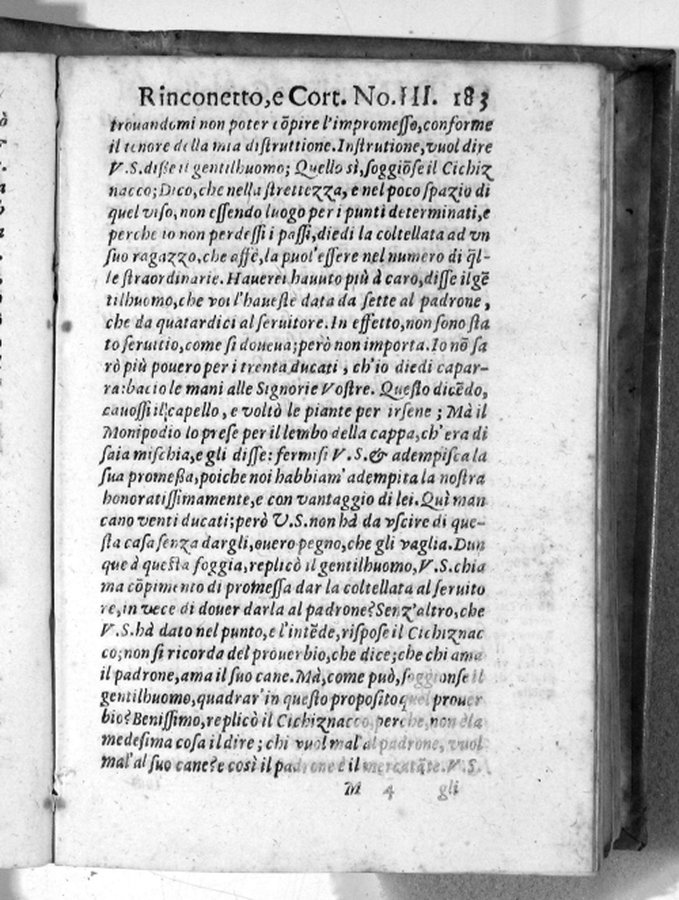 Rinconetto, e Cort. No. III. 183
trouandomi non poter cõpire l'impromesso, conforme
il tenore della mia distruttione. Instrutione, vuol dire
V.S. disse il gentilhuomo; Quello sì, soggiõse il Cichiz
nacco; Dico, che nella strettezza, e nel poco spazio di
quel viso, non essendo luogo per i punti determinati, e
perche io non perdessi i passi, diedi la coltellata ad vn
suo ragazzo, che affè, la puol'essere nel numero di q̃l-
le straordinarie. Hauerei hauuto più à caro, disse il gẽ
tilhuomo, che voi l'haueste data da sette al padrone,
che da quatardici al seruitore. In effetto, non sono sta
to seruitio, come si doueua; però non importa. Io nõ sa
rò più pouero per i trenta ducati, ch'io diedi capar-
ra: bacio le mani alle Signorie Vostre. Questo dicẽdo,
cauossi il capello, e voltò le piante per irsene; Mà il
Monipodio lo prese per il lembo della cappa, ch'era di
saia mischia, e gli disse: fermisi V.S. & adempisca la
sua promessa, poiche noi habbiam' adempita la nostra
honoratissimamente, e con vantaggio di lei. Quì man
cano venti ducati; però V.S. non hà da vscire di que-
sta casa senza dargli, ouero pegno, che gli vaglia. Dun
que à questa foggia, replicò il gentilhuomo, V.S. chia
ma cõpimento di promessa dar la coltellata al seruito
re, in vece di douer darla al padrone? Senz'altro, che
V.S. hà dato nel punto, e l'intẽde, rispose il Cichiznac
co; non si ricorda del prouerbio, che dice; che chi ama
il padrone, ama il suo cane. Mà, come può, soggionse il
gentilhuomo, quadrar' in questo proposito quel prouer
bio? Benissimo, replicò il Cichiznacco, perche, non è la
medesima cosa il dire; chi vuol mal' al padrone, vuol
mal' al suo cane? e così il padrone è il mercatãte. V.S.
M 4 gli